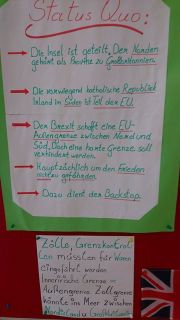 Status Quo:
Die Insel ist geteilt, Der Norden
gehört als Provinz zu Großbritannien.
Die vorwiegend katholische Republik
Irland im Süden ist Teil der EU.
Der Brexit schafft eine EU-
Außengrenze zwischen Nord und
Süd, Doch eine harte Grenze soll
verhindert werden.
Hauptzächlich um den Frieden
nicht zu gefährden.
Dazu dient der Backstop.
Zölle, Grenzkontrol
len müssten für Waren
eingeführt werden
Innerirische Grenze =
Außengrenze Zollgrenze
könnte ins Meer zwischen
Nordirland u Großbritannien